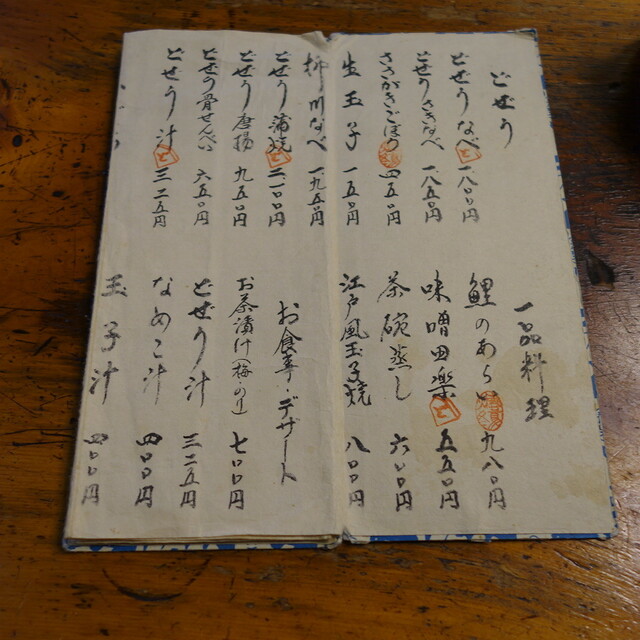 どぜう
どぜうなべ 一八〇〇円
どぜうさきなべ 一八五〇円
ささがきごぼう 四五〇円
生玉子 一五〇円
柳川なべ 一九五〇円
どぜう蒲焼 二一〇〇円
どぜう唐揚 九五〇円
どぜう骨せんべい 六五〇円
どぜう汁 三二五円
一品料理
鯉のあらい 九八〇円
味噌田楽 五五〇円
茶碗蒸し 六〇〇円
江戸風玉子焼 八〇〇円
お食事・デザート
お茶漬け(梅・のり) 七〇〇円
どぜう汁 三二五円
なめこ汁 四〇〇円
玉子汁 四〇〇円